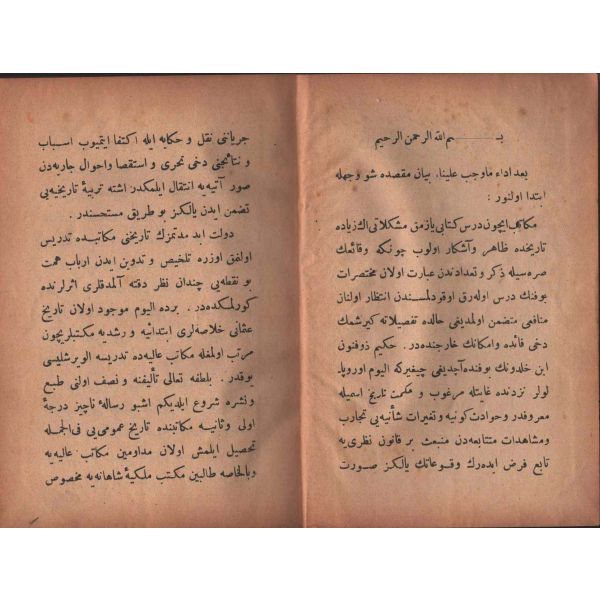 بسم الله الرحمن الرحيم
بعد اداء ماوجب علينا، بيان مقصده شو وجهله
ابتدا اولنور :
مكاتب ايچون درس كتابى يازمق مشكلاتى اك زياده
تاريخده ظاهر و آشكار اولوب چونكه وقائعك
صره سيله ذكر و تعدادندن عبارت اولان مختصرات
بوفنك درس اوله رق اوقودلمسندن انتظار اولنان
منافعى متضمن اولمديغى حالده تفصيلاته كيرشمك
دخى فائده و امكانك خارجنده در . حكيم ذوفنون
ابن خلدونك بوفنده آچديغى چيغيركه اليوم اوروپا
لولر نزدنده غايتله مرغوب و حكمت تاريخ اسميله
معروفدر وحوادث كونيه و تغيرات شأنيه يى تجارب
ومشاهدات متتابعه دن منبعث بر قانون نظرى يه
تابع فرض ايده رك وقوعاتك يالكز صورت
جرياننى نقل و حكايه ايله اكتفا ايتميوب اسباب
و نتائجنى دخى تحرى و استقصا و احوال جاريه دن
صور آتيه يه انتقال ايلمكدر اشته تربيۀ تاريخيه يى
تضمن ايدن يالكز بو طريق مستحسندر .
دولت ابد مدتمزك تاريخنى مكاتبده تدريس
اولنمق اوزره تلخيص و تدوين ايدن ارباب همت
بو نقطه يى چندان نظر دقته آلمدقلرى اثرلرنده
كورلمكده در . برده اليوم موجود اولان تاريخ
عثمانى خلاصه لرى ابتدائيه و رشديه مكتبلريچون
مرتب اولمغله مكاتب عاليه ده تدريسه الويرشليسى
يوقدر . بلطفه تعالى تأليفنه و نصف اولنى طبع
ونشره شروع ايلديكم اشبو رسالۀ ناچيز درجۀ
اولى وثانيۀ مكاتبنده تاريخ عمومى يى فى الجمله
تحصيل ايلمش اولان مداومين مكاتب عاليه يه
وبالخاصه طالبين مكتب ملكيۀ شاهانه يه مخصوص